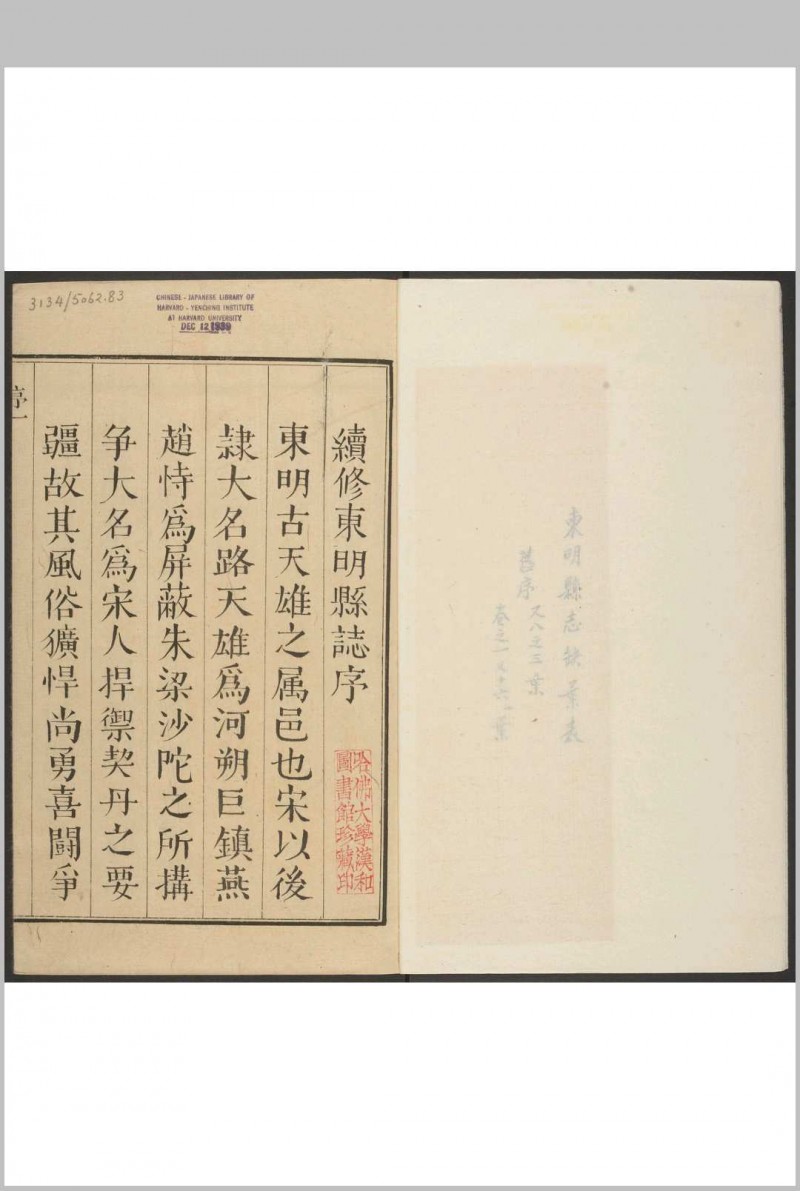 東明縣志缺葉表
舊序 又八之三葉
卷之一 之十六葉
3134/5062.83
CHINESE - JAPANESE LIBRARY OF
HARVARD - YENCHING INSTITUTE
AT HARVARD UNIVERSITY
DEC 12 1939
續修東明縣誌序
東明古天雄之属邑也宋以後
隷大名路天雄爲河朔巨鎮燕
趙恃爲屏蔽朱梁沙陀之所搆
争大名爲宋人捍禦契丹之要
疆故其風俗獷悍尚勇喜闘爭
序一
哈佛大學漢和
圖書館珍藏印